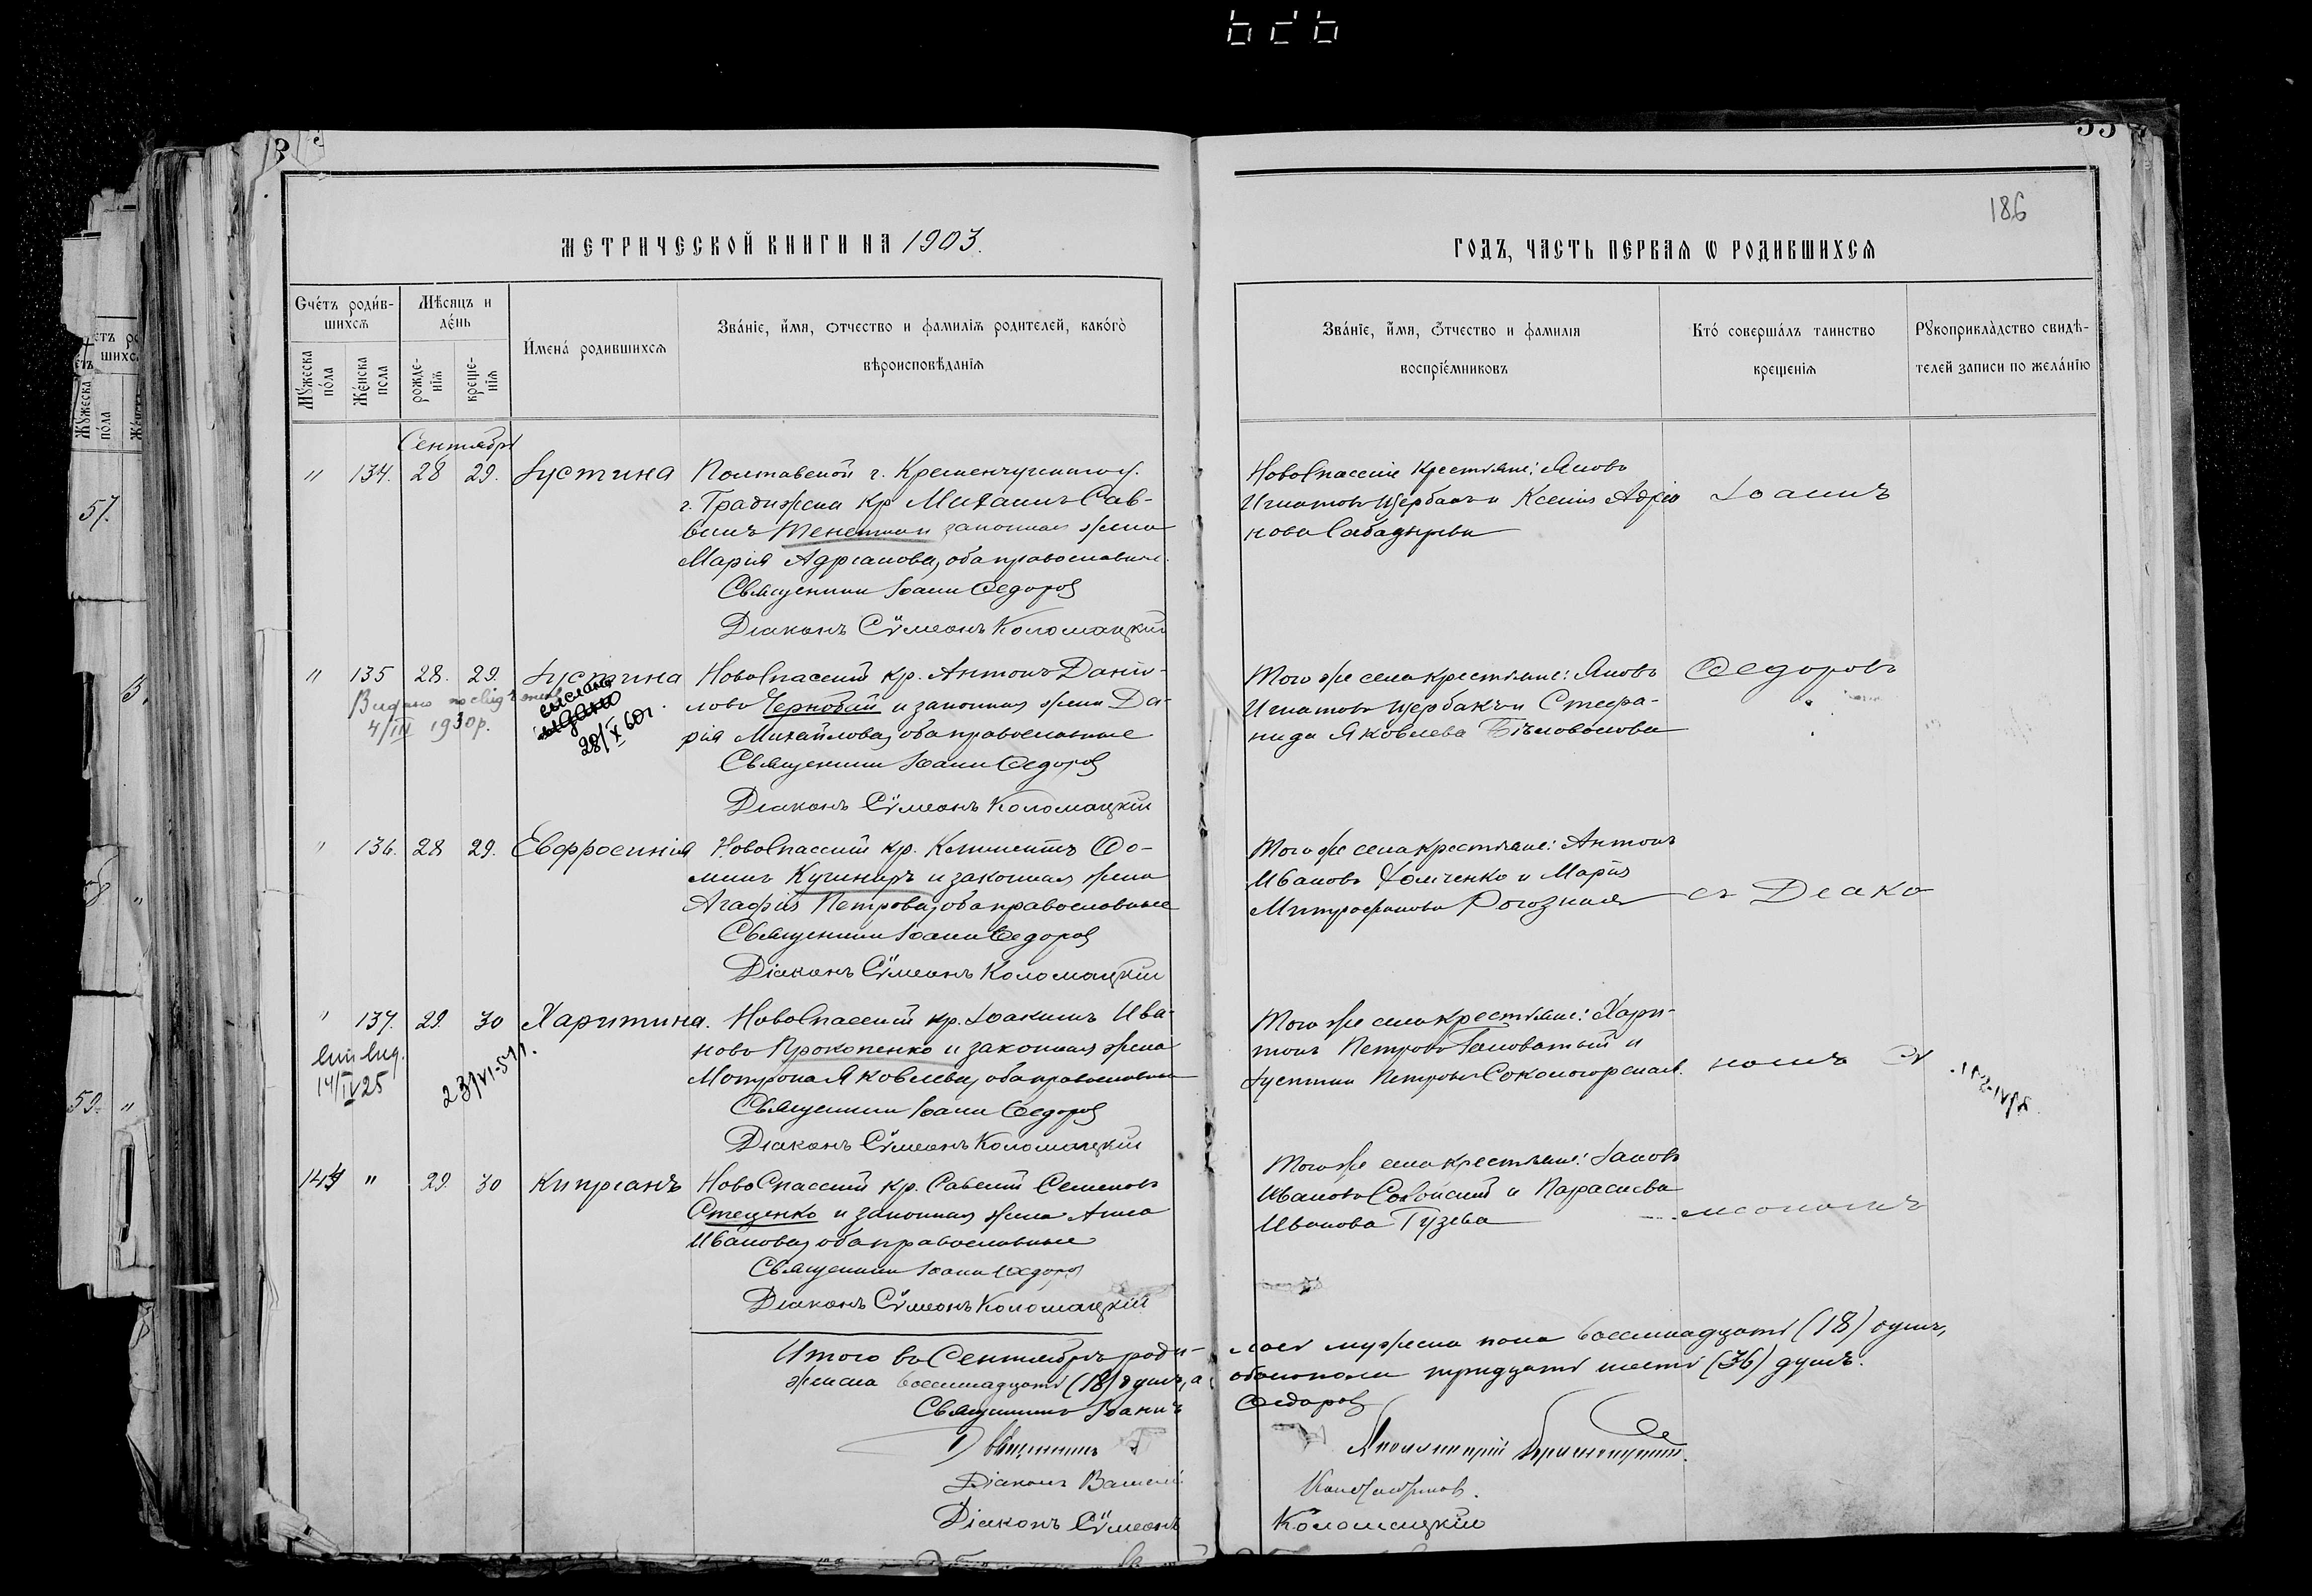 186
МЕТРИЧЕСКОЙ КНИГИ НА 1903.
ГОДЪ, ЧАСТЬ ПЕРВАЯ Ѡ РОДИВШИХСЯ
Счетъ родив-
шихся
Мѣсяцъ и
день
Имена родившихся
Званіе, имя, отчество и фамилія родителей, какого
вѣроисповѣданія
Мужеска
пола
Женска
пола
рожде-
нія
креще-
нія
Званіе, имя, отчество и фамилія
воспріемниковъ
Кто совершалъ таинство
крещенія
Рукоприкладство свидѣ-
телей записи по желанію
Сентябрь
" 134. 28 29. Іустина Полтавской г. Кременчугскаго у.
г. Градижска кр Михаилъ Сав-
винъ законная жена
Марія Адріанова, оба православные.
Священник Іоанн Федоров
Діаконъ Сѵмеонъ Коломацкій
НовоСпасскіе крестьяне: Яковъ
Игнатовъ Щербакъ и Ксенія Адріа
нова
Іоаннъ
" 135 28. 29. Іустина НовоСпасскій кр. Антонъ Дани-
ловъ Чернобай и законная жена Да-
рія Михайлова, оба православные
Священник Іоанн Федоров
Діаконъ Сѵмеонъ Коломацкій
Видано
4/III 1930 р.
выслано
28/X 60 г.
Того же села крестьяне: Яковъ
Игнатовъ Щербакъ и Стефа-
нида Яковлева Бѣловолова
Федоровъ
" 136. 28 29. Евфросинія НовоСпасскій кр. Климентъ Фо-
минъ Кучинеръ и законная жена
Агафія Петрова, оба православные
Священник Іоанн Федоров
Діаконъ Сѵмеонъ Коломацкій
Того же села крестьяне: Антонъ
Ивановъ Хомченко и Марія
Митрофанова Рогозная
съ Діако
" 137. 29. 30 Харитина. НовоСпасскій кр. Іоакимъ Ива-
новъ Прокопенко и законная жена
Матрона Яковлева, оба православные
Священник Іоанн Федоров
Діаконъ Сѵмеонъ Коломацкій
14/IV 25
23/VI-51 г.
Того же села крестьяне: Хари-
тонъ Петровъ Головатый и
Іустина Петрова Сокологорская.
номъ Сѵ
144 " 29. 30 Кипріанъ НовоСпасскій кр. Савелій Семеновъ
Стеценко и законная жена Анна
Иванова, оба православные
Священник Іоанн Федоров
Діаконъ Сѵмеонъ Коломацкій
Того же села крестьяне: Іаковъ
Ивановъ и Параскева
Иванова Гузева
меономъ
Итого въ Сентябрѣ роди- лось мужеска пола восемнадцать (18) душъ,
женска восемнадцать (18) душъ, а обоего пола тридцать шесть (36) душъ.
Священникъ Іоаннъ Федоров
Священникъ
Діаконъ Василій
Діаконъ Сѵмеонъ Коломацкій